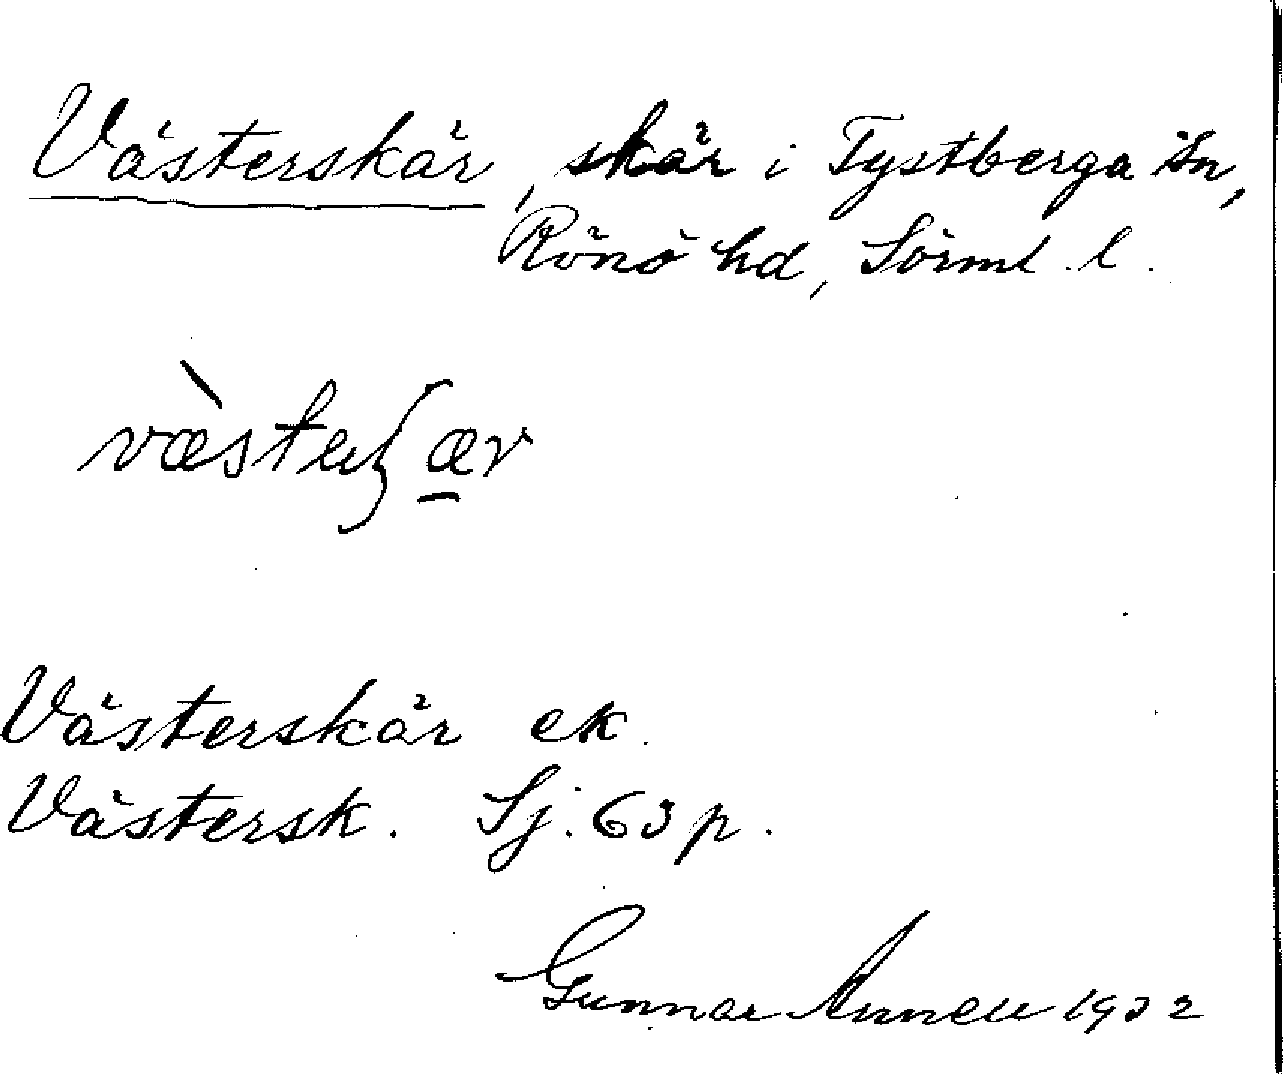 Västerskär, skär i Tystberga sn,
Rönö hd, Sörml. l.
Västerskär ek.
Västersk. Sj. 63 p.
Gunnar Annell 1932